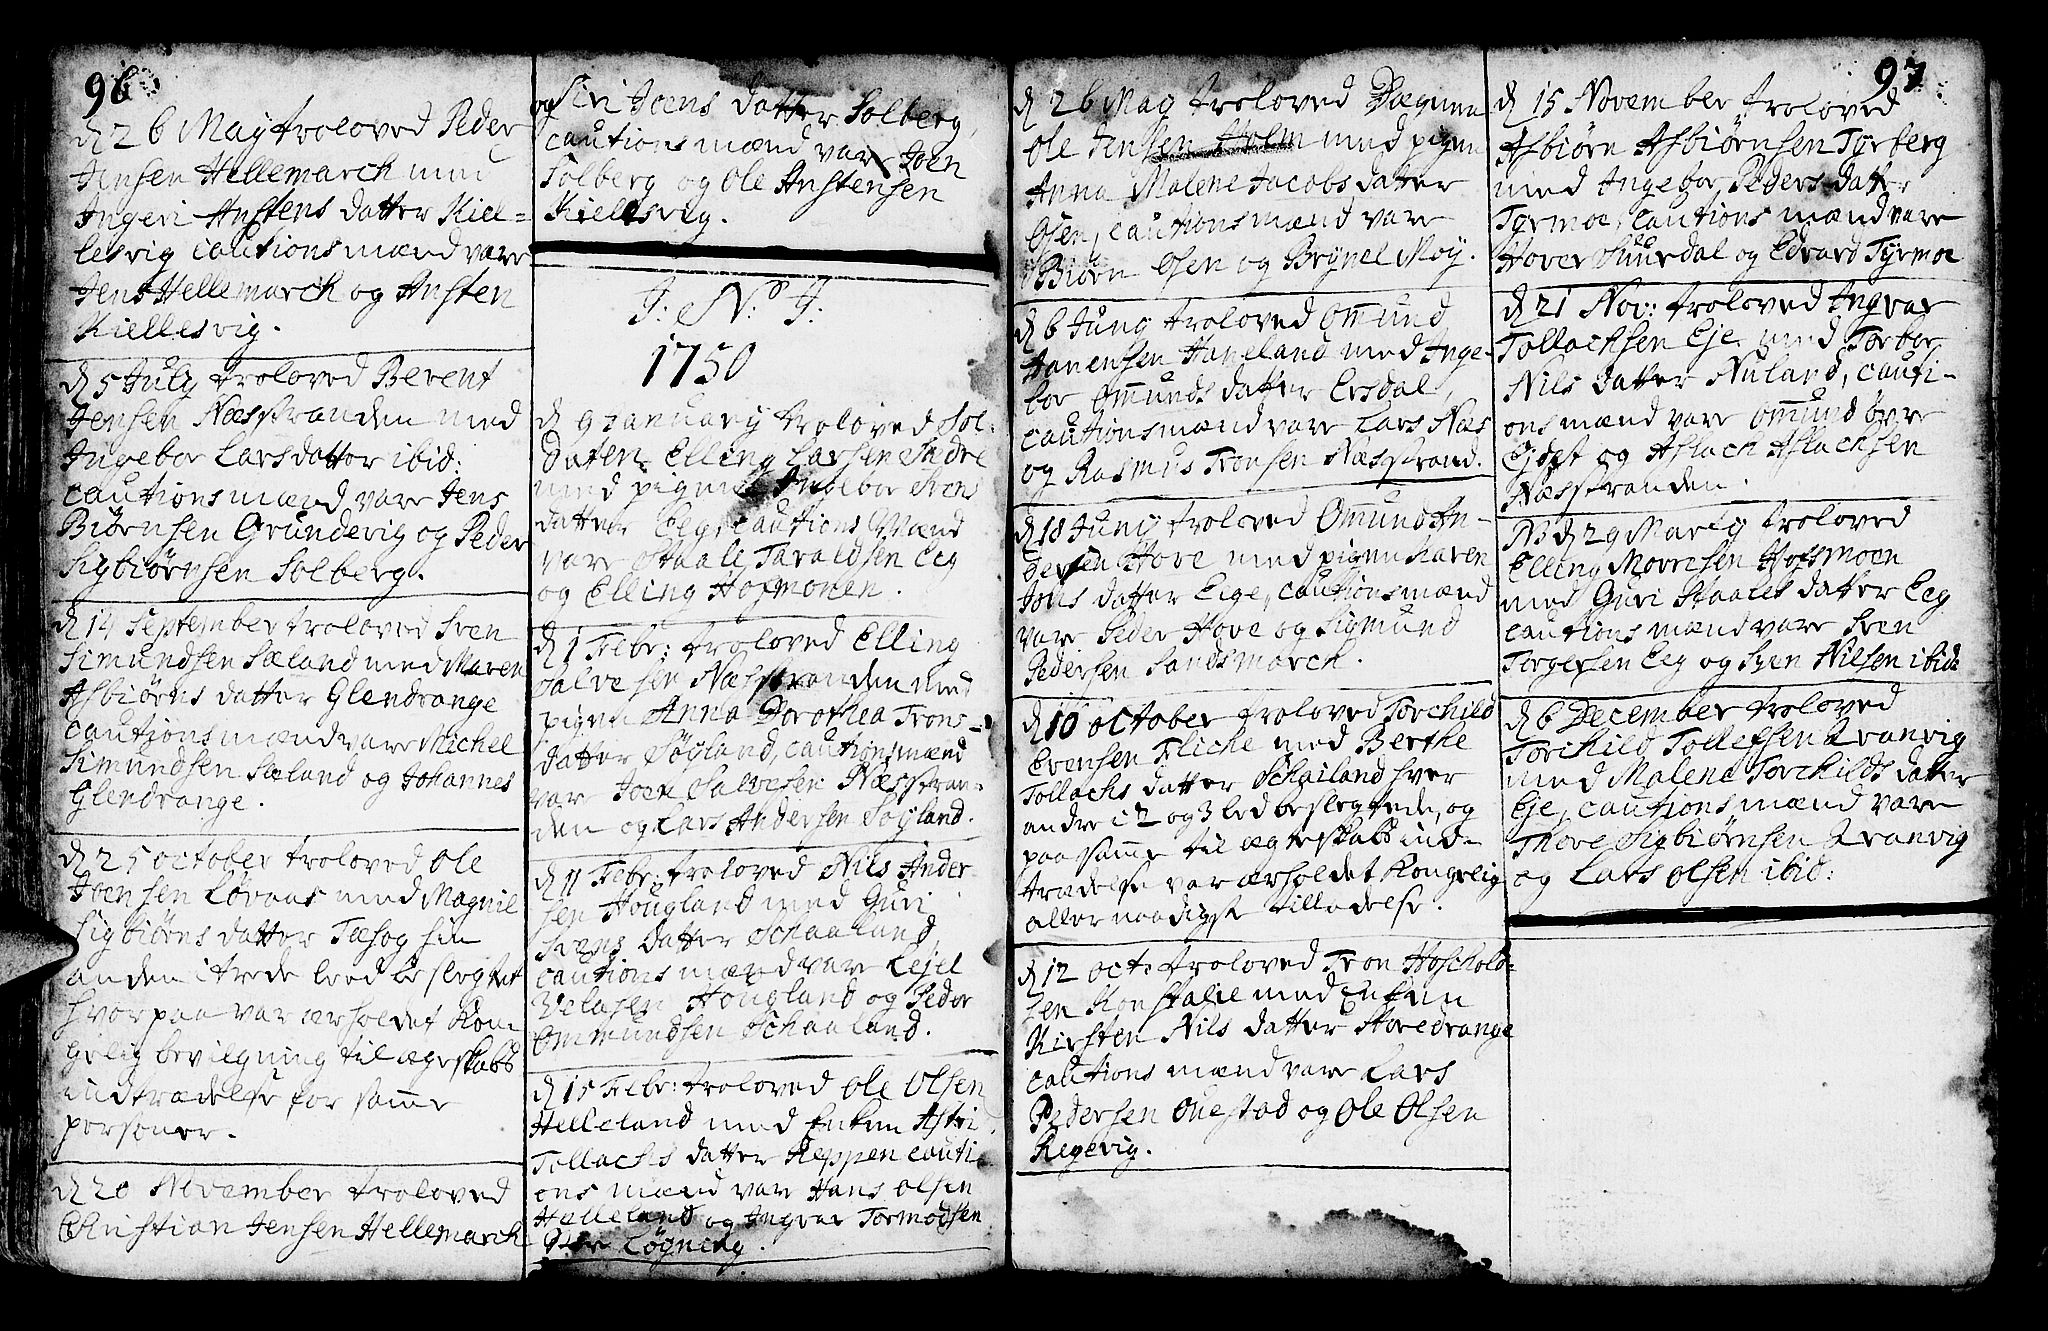 96
d 26 May troloved Peder
Jensen Hellemarch med
Ingeri Anstens datter Kiel=
lesvig cautions mænd vare
Jens Hellemarch og Ansten
Kiellesvig.
d 5 July troloved Berent
Jensen Næsstranden med
Ingebor Larsdatter ibid:
cautions mænd vare Jens
Biørnsen Grundevig og Peder
Sigbiørnsen Solberg.
d 14 September troloved Sven
Simundsen Sæland med Maren
Asbiørns datter Glendrange
cautions mænd vare Michel
Simundsen Sæland og Johannes
Glendrange.
d 25 october troloved Ole
Joensen Løvaas med Magnil
Sigbiørns datter Tæsog sin
anden i trede leed beslegtet
hvorpaa var ærholdet Kon=
gelig bevilgning til ægeskabs
indtrædelse for samme
personer.
d 20 November troloved
Christian Jensen Hellemarch
og Siri Joens datter Solberg,
cautions mænd vare Joen
Solberg og Ole Anstensen
Kiellesvig.
J: N: J:
1750
d 9 January troloved Sol=
daten Elling Larsen Indre
med pigen Ingebor Svens
datter Eeg, cautions Mænd
var Staale Taraldsen Eeg
og Elling Hofmonen.
d 1 Febr: troloved Elling
Salvesen Næsstranden med
pigen Anna Dorothea Trons=
datter Søgland, cautionsmænd
var Joen Salvesen Næsstran=
den og Lars Andersen Søgland.
d 11 Febr: troloved Nils Ander=
sen Hougland med Guri
Svens datter Schaaland,
cautions mænd vare Kejel
Velasen Hougland og Peder
Ommundsen Schaaland.
d 15 Febr: troloved Ole Olsen
Helleland med Enken Astri
Tollachs datter Reppen cauti=
ons mænd var Hans Olsen
Helleland og Ingvar Tormodsen
Løgning.
97
d 26 May troloved Dægnen
Ole Jensen Holm med pigen
Anna Malene Jacobs datter
Osen, cautions mænd vare
Biørn Osen og Brynel Moy.
d 6 Juny troloved Omund
Hanensen Haneland med Inge=
bor Omunds datter Ersdal,
cautionsmænd vare Lars Næs
og Rasmus Tronsen Næsstrand.
d 18 Juny troloved Omund An=
dersen Hove med pigen Karen
Jons datter Eige, cautionsmænd
vare Peder Hove og Sigmund
Pedersen Sandsmarch.
d 10 october troloved Torchild
Evensen Fliche med Berthe
Tollachs datter Schailand hver
andre i 2 og 3 led beslegtede, og
paa samme til ægteskabs ind=
trædelse var ærholdet Kongelig
aller naadigst tilladelse.
d 12 oct: troloved Tron Hoschold=
sen Konstalie med Enken
Kirsten Nils datter Storedrange
cautions mænd vare Lars
Pedersen Ouestad og Ole Olsen
Regevig.
d 15 November troloved
Asbiørn Asbiørnsen Tyrberg
med Ingebor Peders datter
Tyrmoe, cautions mænd vare
Hover Suurdal og Edvard Tyrmoe
d 21 Nov: troloved Ingvar
Tollachsen Eje med Torbor
Nils datter Nuland, cauti=
ons mænd vare Omund øvre
Ejdet og Aslach Aslachsen
Næsstranden.
NB d 29 Marty troloved
Elling Movresen Hofsmoen
med Guri Staales datter Eeg
cautions mænd vare Sven
Torgersen Eeg og Sven Nilsen ibid
d 6 December troloved
Torchild Tollefsen Qvanvig
med Malene Torchilds datter
Eje, cautions mænd vare
Thore Sigbiørnsen Qvanvig
og Lars Olsen ibid: